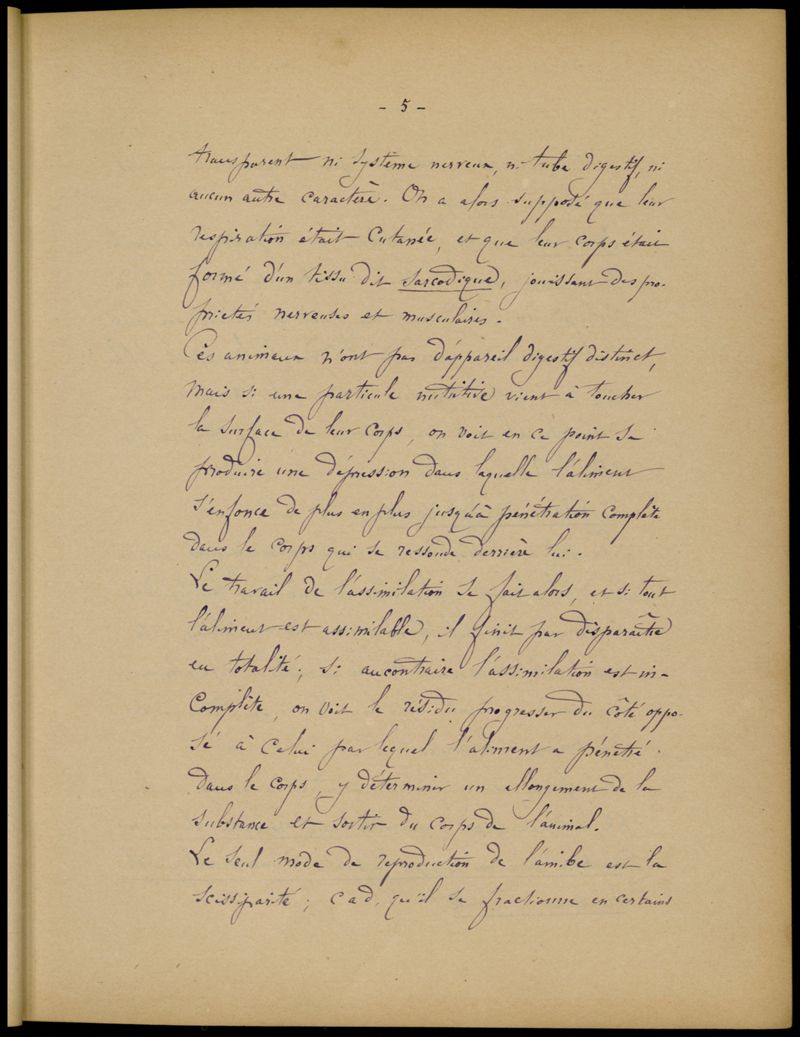 - 5 -
transparent ni système nerveux, ni tube digestif, ni
aucun autre caractère. On a alors supposé que leur
respiration était Cutanée, et que leur corps était
formé d'un tissu dit sarcodique, jouissant des pro-
priétés nerveuses et musculaires.
Ces animaux n'ont pas d'appareil digestif distinct,
mais si une particule nutritive vient à toucher
la surface de leur corps, on voit en ce point se
produire une dépression dans laquelle l'aliment
s'enfonce de plus en plus jusqu'à pénétration complète
dans le corps qui se ressoude derrière lui.
Le travail de l'assimilation se fait alors, et si tout
l'aliment est assimilable, il finit par disparaître
en totalité; si au contraire l'assimilation est in-
Complète, on voit le résidu progresser du côté oppo-
sé à celui par lequel l'aliment a pénétré.
dans le corps, y déterminer un allongement de la
substance et sortir du corps de l'animal.
Le seul mode de reproduction de l'amibe est la
scissiparité; c a d, qu'il se fractionne en certains